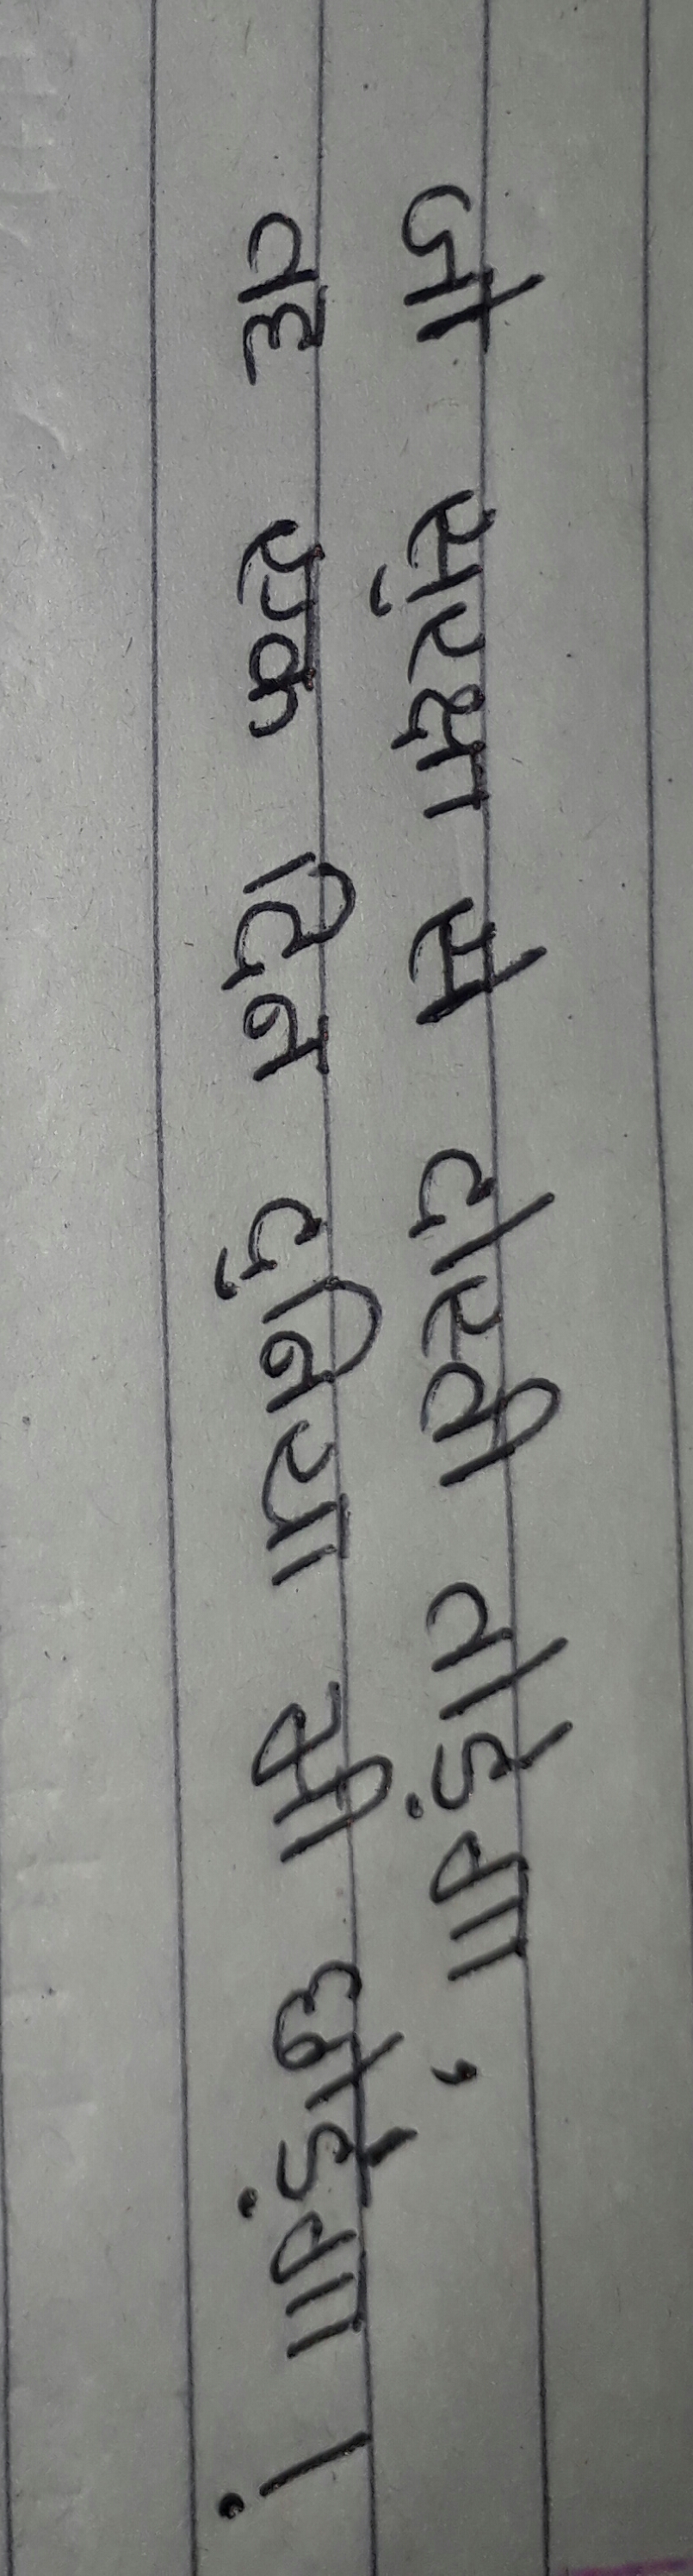 जो सुरक्षा से दोस्ती तोड़ेगा,
वह एक दिन दुनिया भी छोड़ेगा!